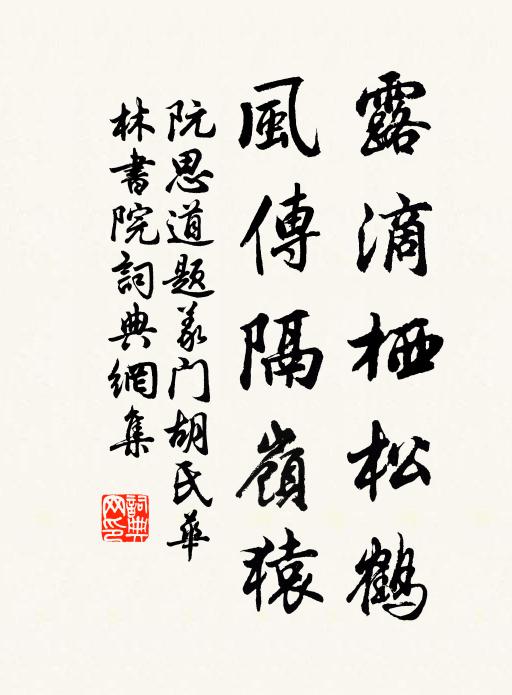 露滴栖松鶴
風傳隔嶺猿
阮思道題義门胡氏華
林書院詞典網集
詞典网印